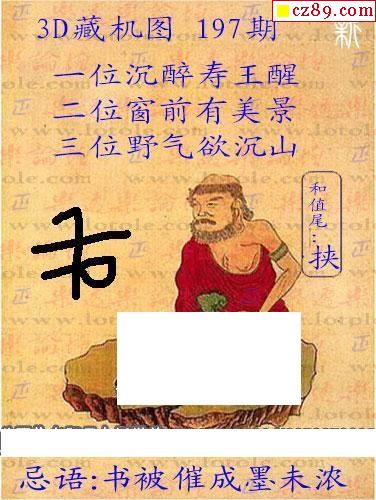 cz89.com
3D藏机图 197期
新
一位沉醉寿王醒
二位窗前有美景
三位野气欲沉山
和值尾:挟
www.lotole.com
忌语:书被催成墨未浓